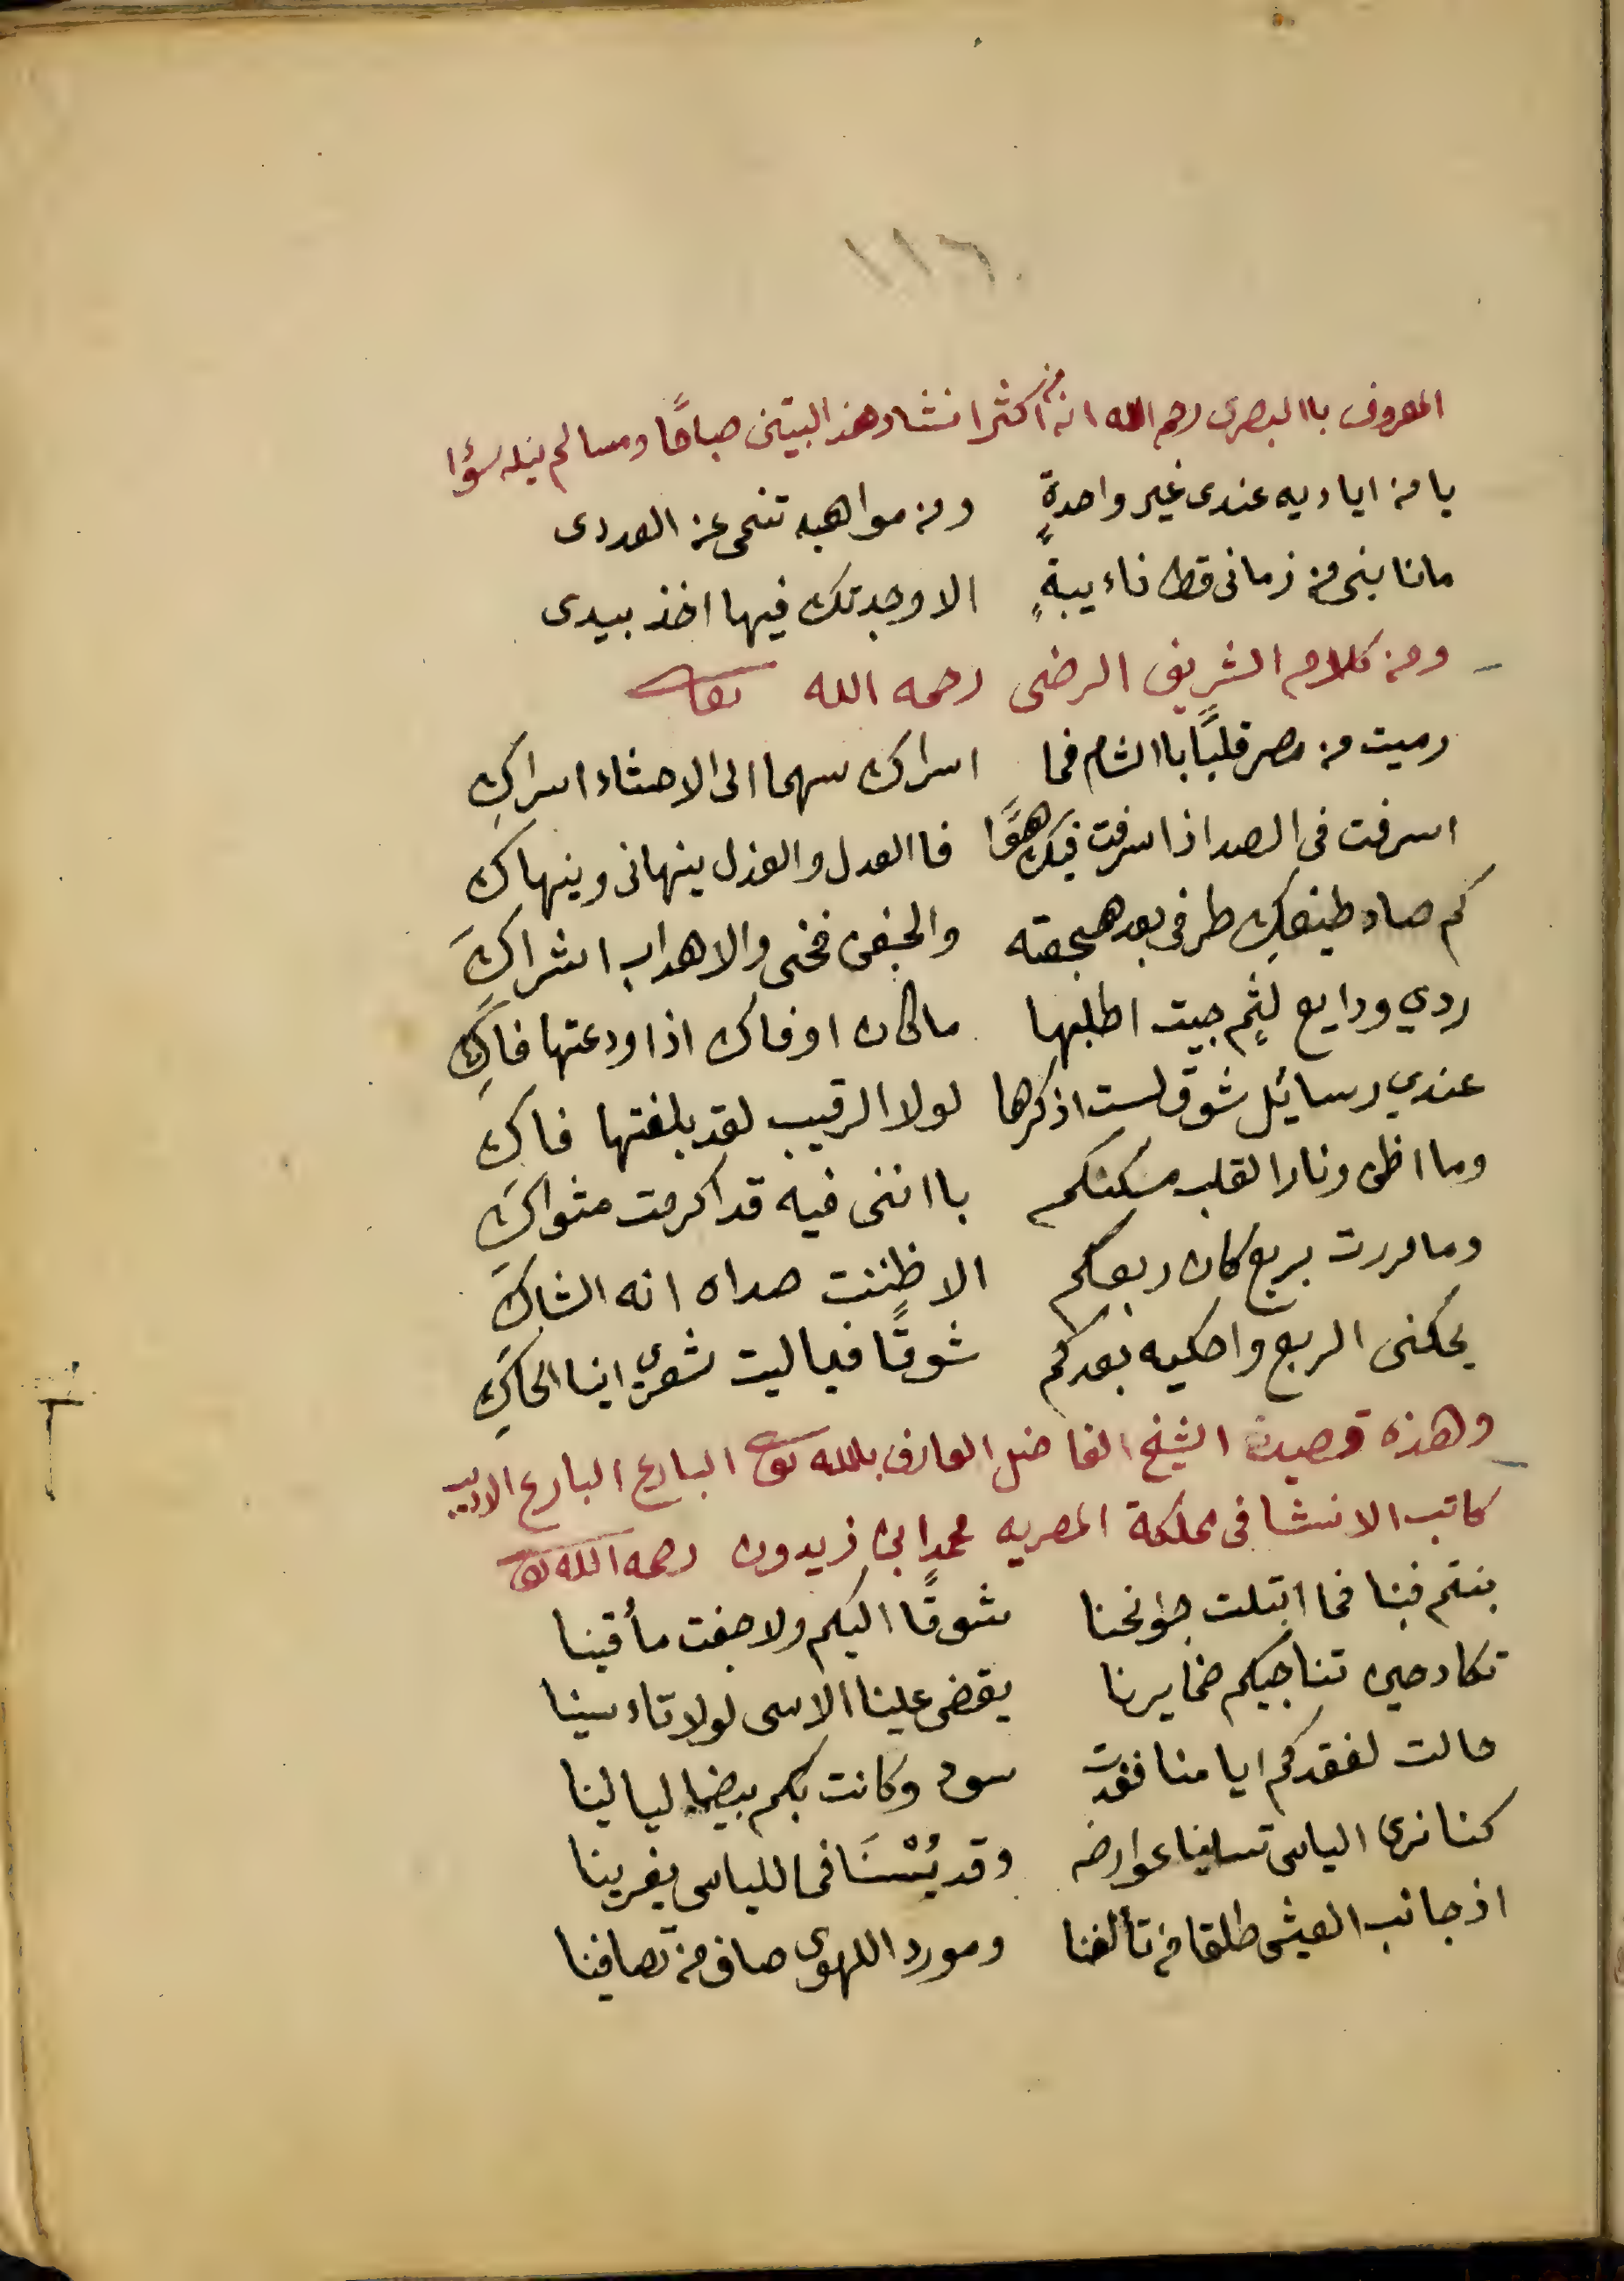 ١١٦
المعروف باالبصرى رحم الله انه من اكثر انشاد هذ البيتين صباحًا ومسا لم ينله سؤا
يا من اياديه عندى غير واحدةٍ ومن مواهبه تنمى عن العددى
ما نابنى من زمانى قط ناءيبةٍ الا وجدتك فيها اخذ بيدى
ومن كلام الشريف الرضى رحمه الله تعالى
رميت من مصر قلبًا باالشام فما اسراك سهما الى الاحشاء اسراكِ
اسرفت فى الصد اذا سرفت فيك هوًا فاالعدل والعذل ينهانى وينهاك
كم صاد طيفكِ طرفى بعد هجعته والجفن فخى والاهداب اشراكِ
ردي ودايع لثمٍ جيت اطلبها ما كان اوفاك اذا ودعتها فاكِ
عندي رسائيل شوق لست اذكرها لولا الرقيب لقد بلغتها فاك
وما اظن ونار القلب مسكنكم باانى فيه قد اكرمت مثواكِ
وما مررت بربع كان ربعكم الا ظننت صداه انه الشاكِ
يحكنى الربع واحكيه بعدكم شوقًا فيا ليت شعرى اينا الحاكِ
وهذه قصيدة الشيخ الفاضل العارف بالله تعالى البارع البارع الاديب
كاتب الانشا فى مملكة المصريه محمد ابن زيدون رحمه الله تعالى
بنتم فبنا فما ابتلت جوانحنا شوقًا اليكم ولا جفت مأقينا
تكاد حين تناجيكم ضمايرنا يقضى علينا الاسى لولا تاءسينا
حالت لفقدكم ايامنا فغدت سود وكانت بكم بيضا ليالينا
كنا نرى الياس تسلينا عوارضه وقد يُئسْنَا فما للياس يغرينا
اذ جانب العيش طلقا من تألفنا ومورد اللهوى صاف من تصافينا